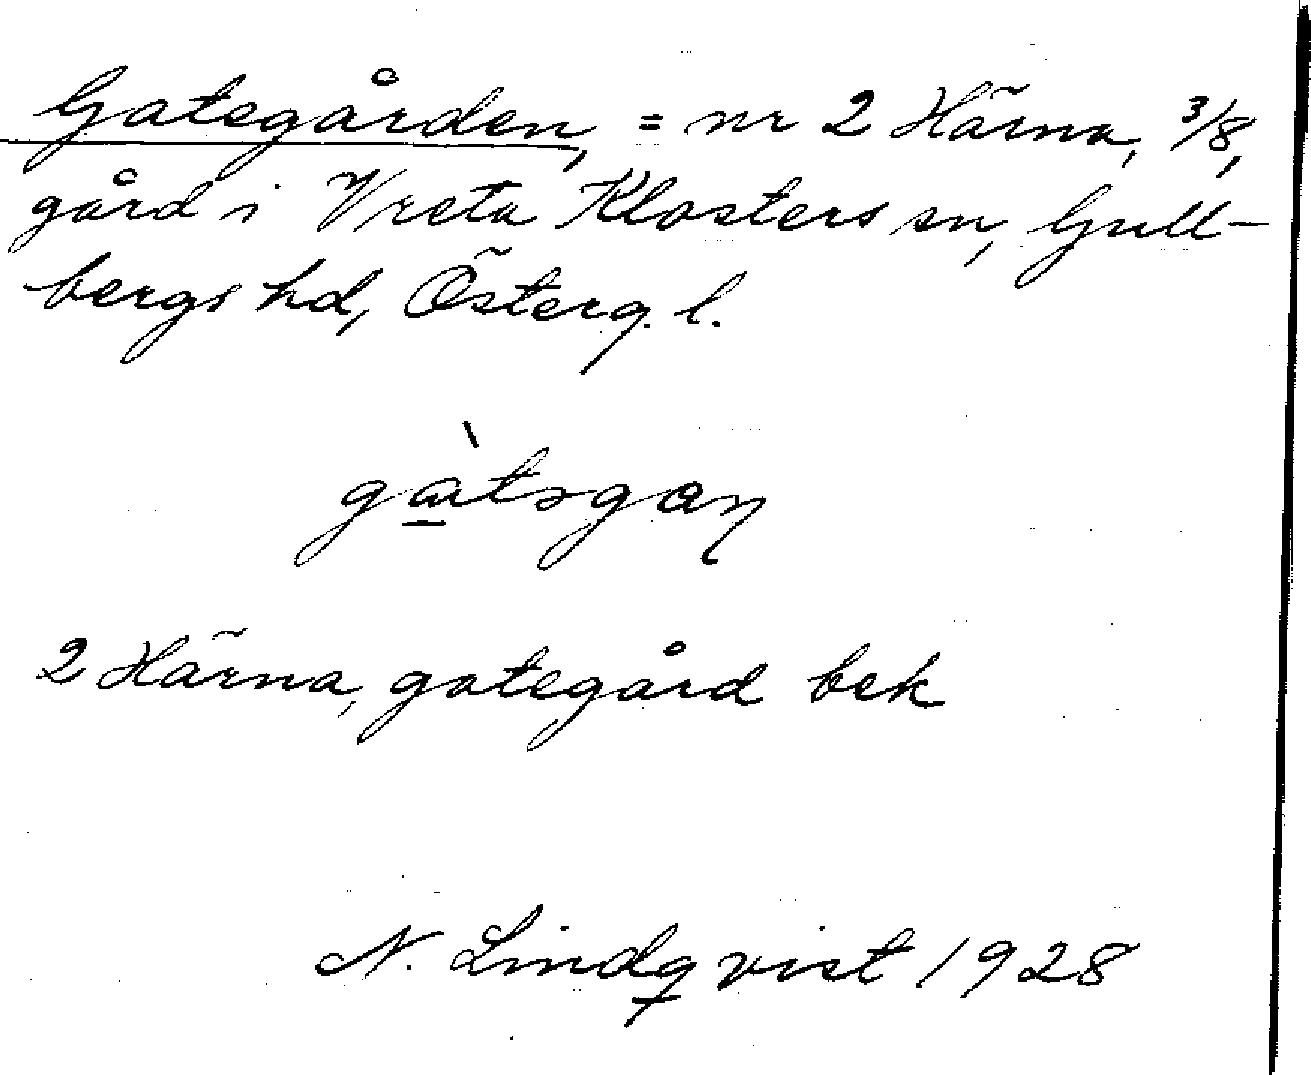 Gategården, = nr 2 Härna, 3/8,
gård i Vreta Klosters sn, Gull-
bergs hd, Österg. l.
2 Härna, gategård bek
N. Lindqvist 1928